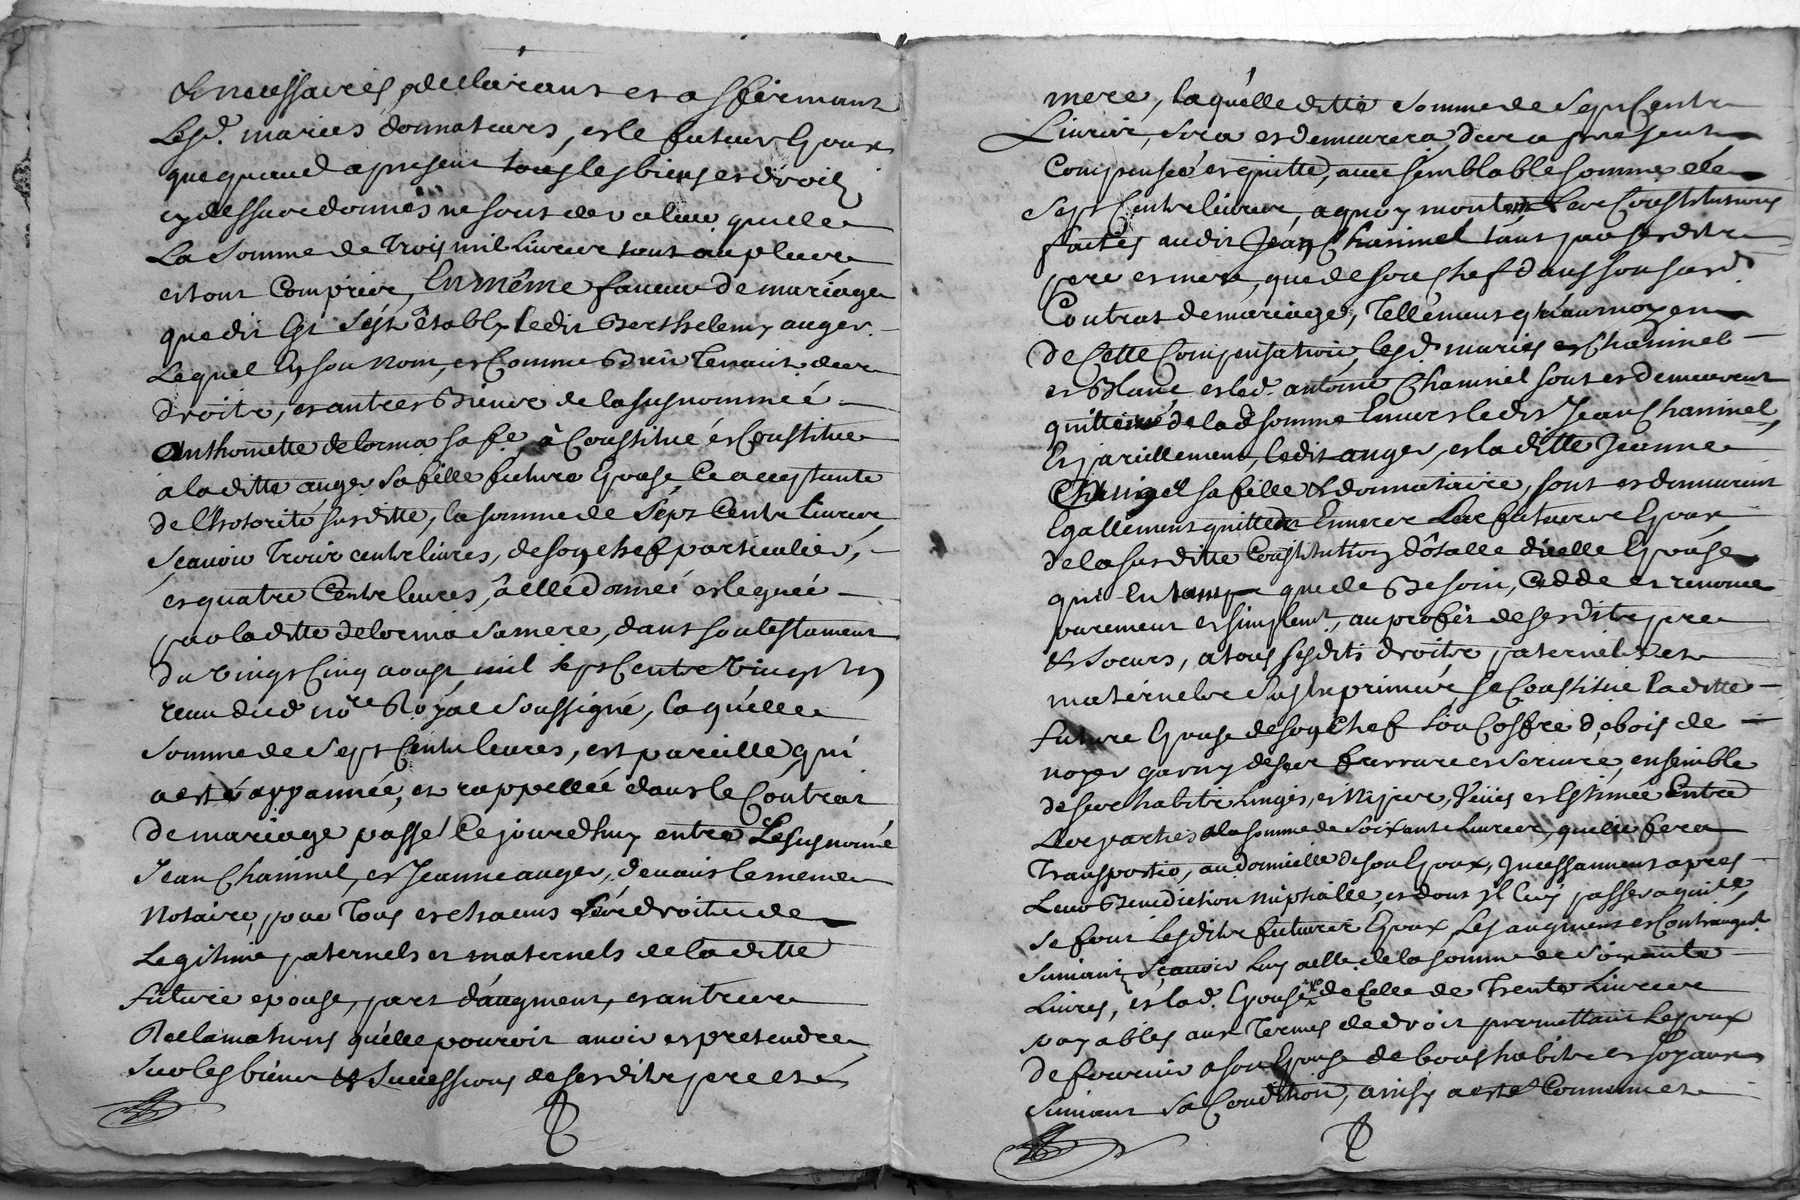 & necessaires, declarant et affirmant
lesd. mariés donnateurs, et le futeur Epoux
que quand a present tous les biens et droits
cy dessus donnés ne sont de valeur que de
La somme de Trois mil Livres tout au plus
et tout Compris, En même faveur de mariage
que dit Est s'est êtably ledit Berthelemy auger
Lequel En son Nom, et Comme Bien Tenant des
droits, et autres Biens de la susnommée
Anthoinette delorma sa fe, à Constitué et Constitue
a laditte auger sa fille future Epouse Ce acceptante
de l'hotorité susditte, la somme de Sept Cents livres
Scavoir Trois cents livres, de son chef particulier,
et quatre Cents livres, à elle donnée et leguée
par laditte delorma sa mere, dans son testament
du vingt Cinq aoust mil sept Cents vingt un
reçu dud nore Royal soussigné, laquelle
somme de Sept Cents livres, est pareille qui
a esté appannée, et rappellée dans le Contrat
de mariage passé Ce jourd'huy entre Le susnomé
Jean Chaminel, et Jeanne auger, devant le meme
Notaire, pour Tous et chacuns ses droits de
Legitime paternels et maternels de laditte
future epouse, part d'augment, et autres
Reclamations qu'elle pouroit avoir et pretendre
sur les biens & successions de sesdits pere et
mere, laquelle ditte somme de Sept Cents
Livres, sera et demeurera, des a present
Compensée et quitte, avec semblable somme de
Sept Cents livres, a quoy montent Les Constitutions
faites audit Jean Chaminel tant par sesdits
pere et mere, que de son chef dans son susd.
Contrat de mariage, Tellement qu'au moyen
de Cette Compensation, lesd. mariés Chaminel
et Blanc et led. antoine Chaminel sont et demeurent
quittes de lad somme Envers ledit Jean Chaminel,
Et pareillement, ledit auger, et laditte Jeanne
sa fille & donnataire, sont et demeurent
Egallement quittes Envers Les futurs Epoux
de la susditte Constitution dôtalle d'icelle Epouse
qui En tant que de Besoin, Cedde et renonce
purement et simplemt, au profit de sesdits pere
& soeurs, a tous sesdits droits paternels et
maternels sus Exprimés se Constitue laditte
future Epouse de son Chef son Coffre de bois de
noyer garny de ses ferrure et serrure, ensemble
de ses habits Linges, et Nipes, Veües et Estimée Entre
Les parties a la somme de soixante Livres, quelle fera
Transporter, au domicille de son Epoux, Incessamment apres
Leur Benediction Nuptialle, et dont Il luy passera quitte,
Se font Lesdits futures Epoux, Les augment et Contraugmt
Suivant, Scavoir Luy a elle de la somme de soixante
Livres, et lad. Epouse de Celle de Trente Livres
payables aux Termes de droit promettant Lepoux
de fournir a son Epouse de bons habits et Joyaux
suivant sa Condition, ainsy a esté Convenu et